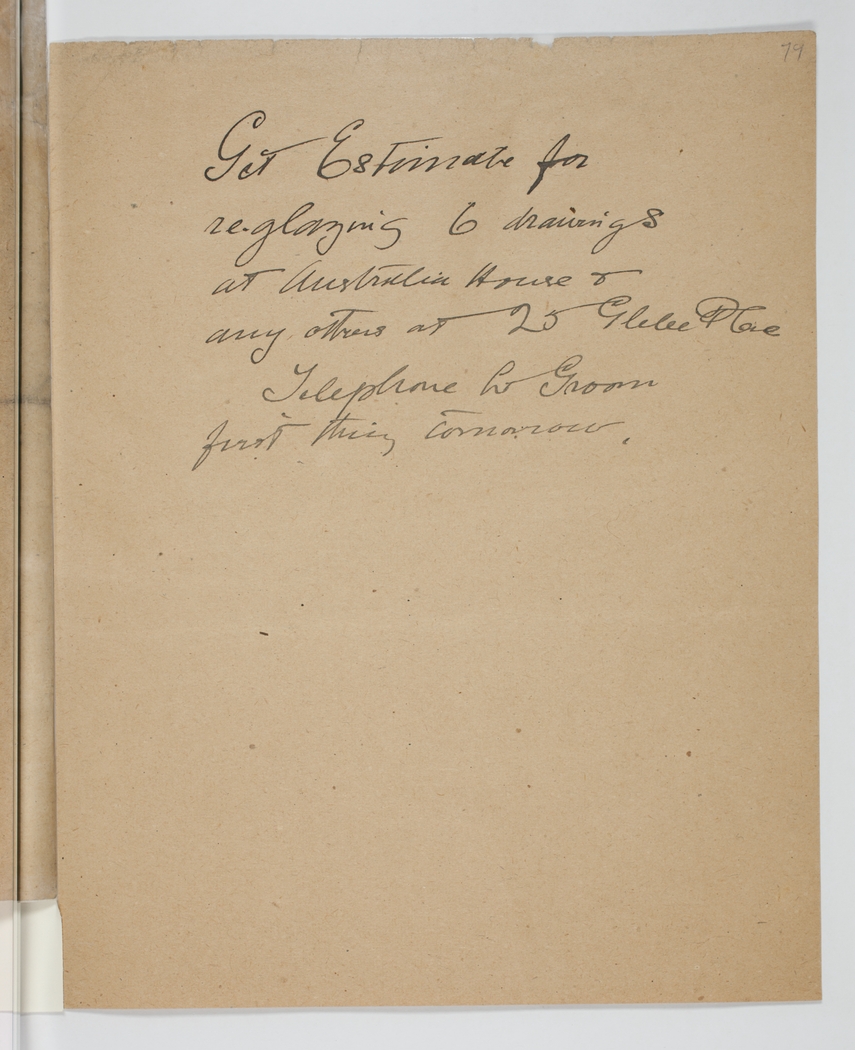 79
Get Estimate for
re-glazing 6 drawings
at Australia House &
any others at 25 Glebe Place
Telephone to Groom
first thing tomorrow.